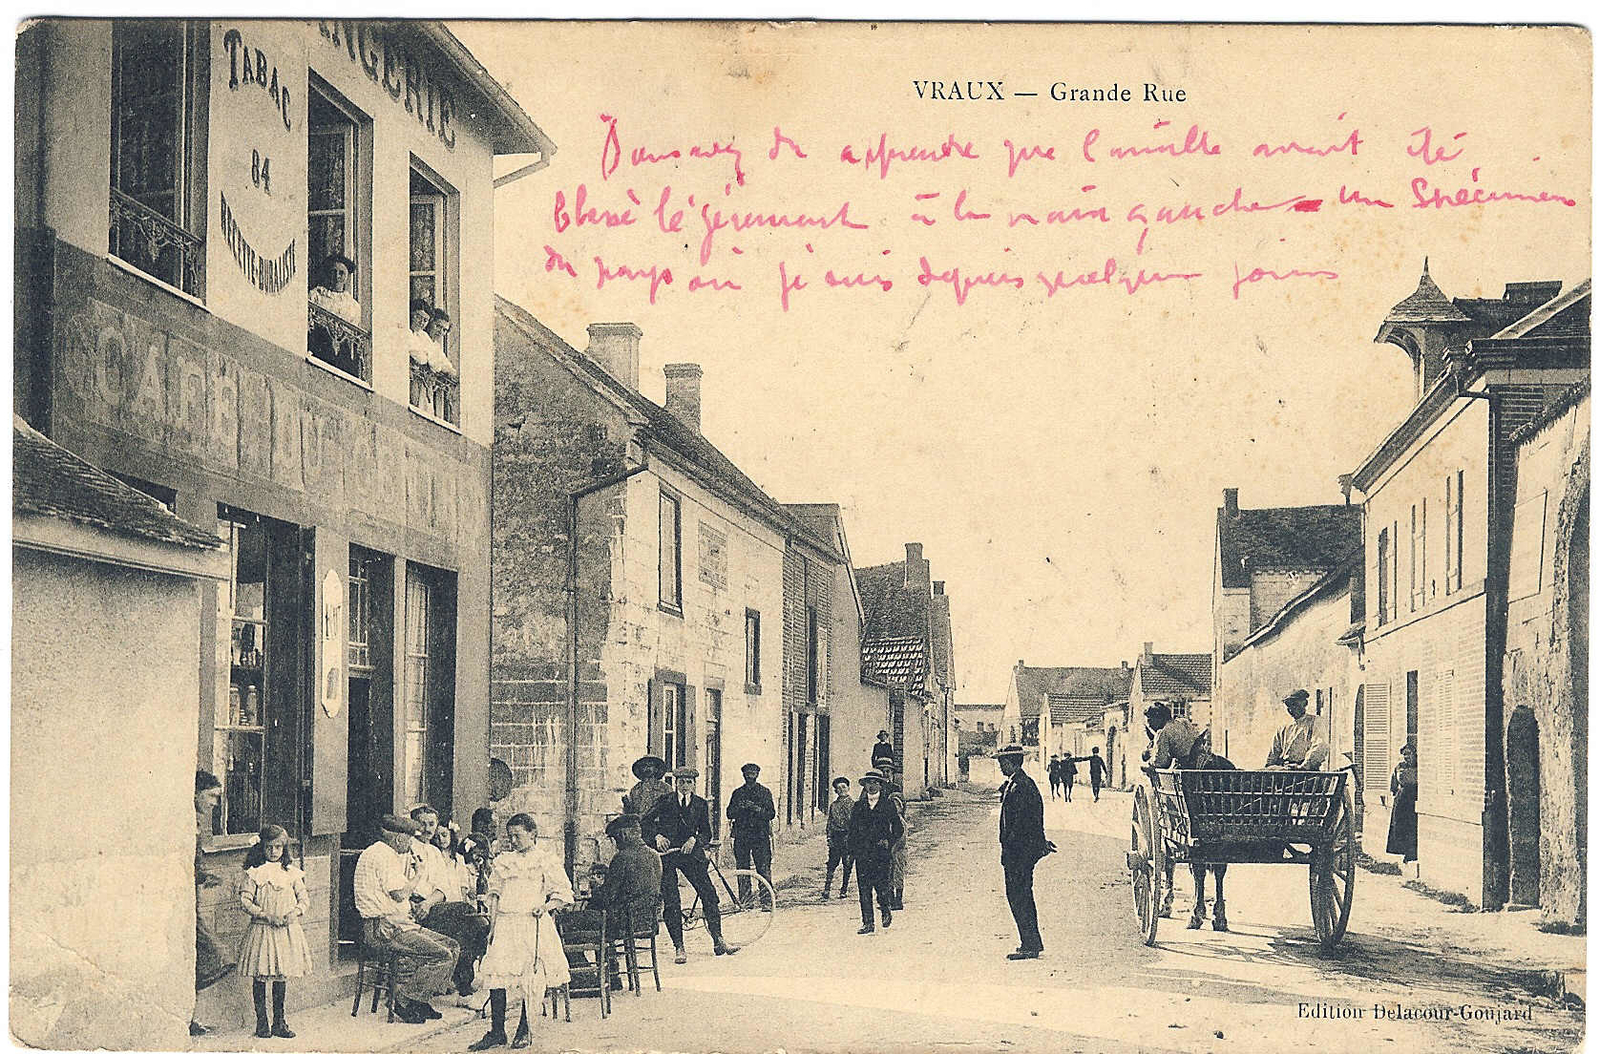 VRAUX — Grande Rue
de apprendre que Camille avait été
blessé légèrement à la main gauche - un Spécimen
du pays où je suis depuis quelques jours
NGERIE
TABAC
84
RECETTE-BURALISTE
CAFÉ DU CENTRE
Edition Delacour-Goujard